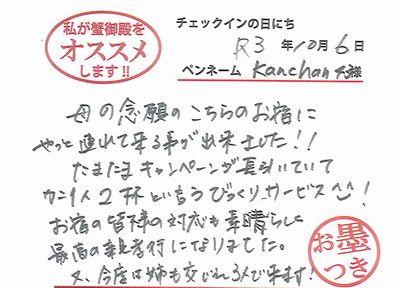 私が蟹御殿を
オススメ
します!!
チェックインの日にち
R3 年 10月 6日
ペンネーム Kanchan 様
母の念願のこちらのお宿に
やっと連れて来る事が出来ました!!
たまたまキャンペーンが長引いていて
カニ1人2杯というびっくりサービス^^!
お宿の皆様の対応も素晴らしく
最高の親孝行になりました。
又、今度は姉も交じれ3人で来ます!
お墨
つき